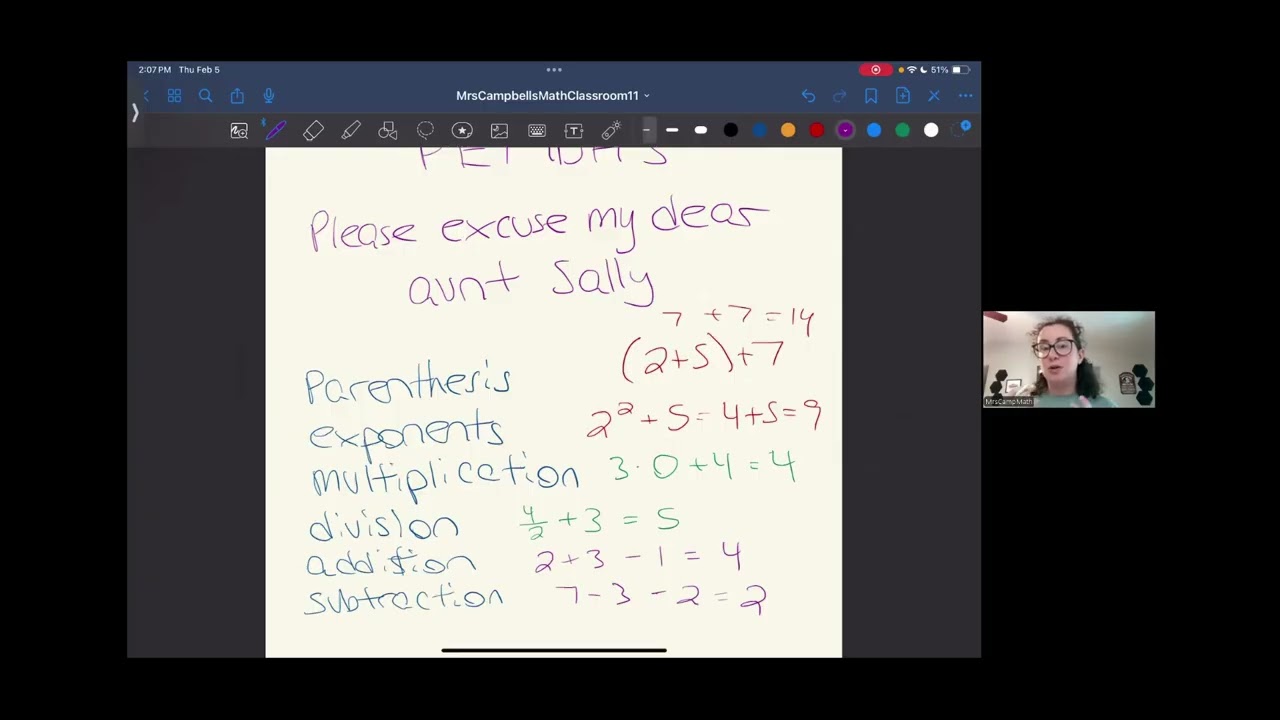 2:07 PM Thu Feb 5
51%
MrsCampbellsMathClassroom11
PEMDAS
Please excuse my dear
aunt Sally
7 + 7 = 14
(2+5)+7
Parenthesis
2² + 5 = 4+5=9
exponents
multiplication 3·0+4=4
division 4/2 + 3 = 5
addition 2+3-1=4
subtraction 7-3-2=2
MrsCampMath